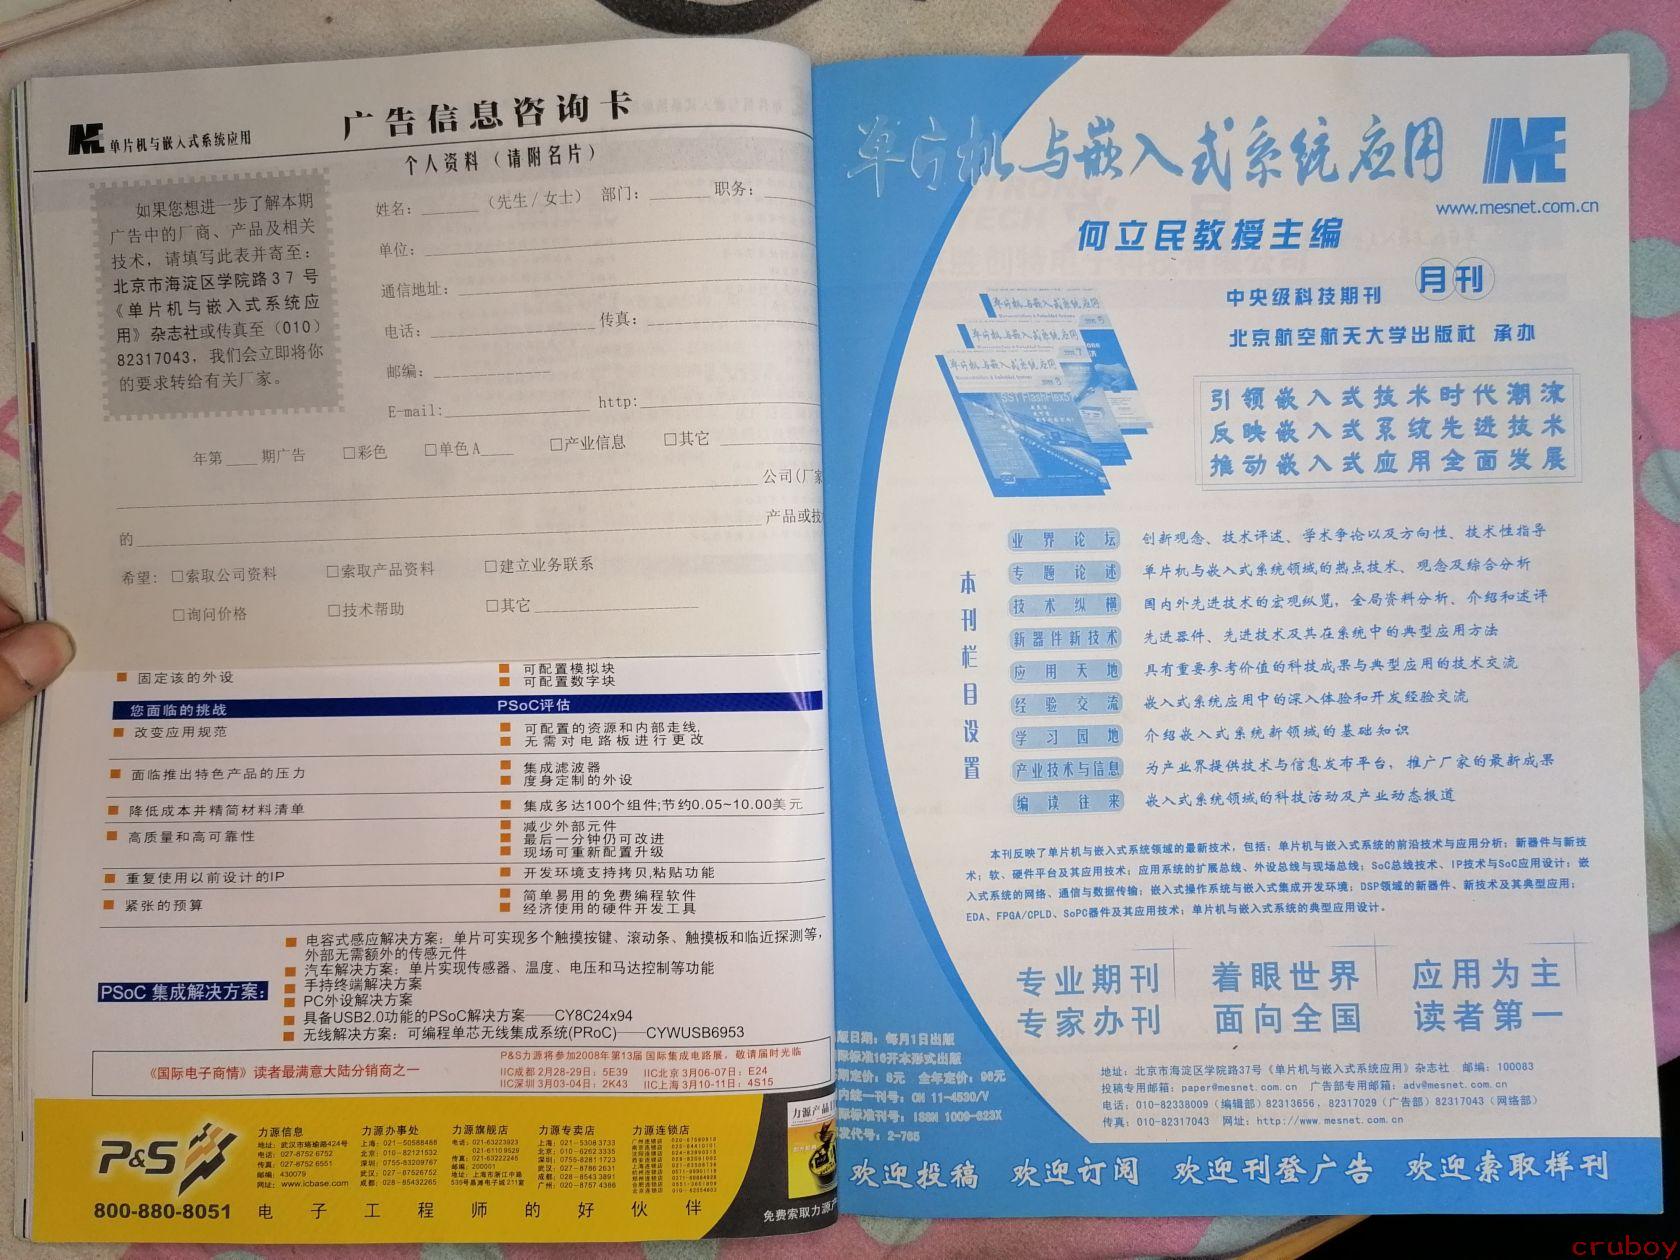 单片机与嵌入式系统应用
广告信息咨询卡
个人资料（请附名片）
如果您想进一步了解本期
广告中的厂商、产品及相关
技术，请填写此表并寄至：
北京市海淀区学院路37号
《单片机与嵌入式系统应
用》杂志社或传真至（010）
82317043，我们会立即将你
的要求转给有关厂家。
姓名：______（先生/女士） 部门：______ 职务：
单位：
通信地址：
电话： 传真：
邮编：
E-mail: http:
年第____期广告 □彩色 □单色A____ □产业信息 □其它
公司(厂家
产品或技
的
希望：□索取公司资料 □索取产品资料 □建立业务联系
□询问价格 □技术帮助 □其它
固定该的外设
可配置模拟块
可配置数字块
您面临的挑战 PSoC评估
改变应用规范
可配置的资源和内部走线,
无需对电路板进行更改
面临推出特色产品的压力
集成滤波器
度身定制的外设
降低成本并精简材料清单
集成多达100个组件;节约0.05~10.00美元
高质量和高可靠性
减少外部元件
最后一分钟仍可改进
现场可重新配置升级
重复使用以前设计的IP
开发环境支持拷贝,粘贴功能
紧张的预算
简单易用的免费编程软件
经济使用的硬件开发工具
PSoC 集成解决方案：
电容式感应解决方案：单片可实现多个触摸按键、滚动条、触摸板和临近探测等，
外部无需额外的传感元件
汽车解决方案：单片实现传感器、温度、电压和马达控制等功能
手持终端解决方案
PC外设解决方案
具备USB2.0功能的PSoC解决方案——CY8C24x94
无线解决方案：可编程单芯无线集成系统(PRoC)——CYWUSB6953
《国际电子商情》读者最满意大陆分销商之一
P&S力源将参加2008年第13届国际集成电路展，敬请届时光临
IIC成都 2月28-29日：5E39 IIC北京 3月06-07日：E24
IIC深圳 3月03-04日：2K43 IIC上海 3月10-11日：4S15
P&S
800-880-8051
力源信息
地址：武汉市珞瑜路424号
电话：027-8752 6752
传真：027-8752 6551
邮编：430079
网址：www.icbase.com
力源办事处
上海：021-50588488
北京：010-82121532
深圳：0755-83209767
武汉：027-87526752
成都：028-85432265
力源旗舰店
电话：021-63223923
021-61109529
传真：021-63222245
邮编：200001
力源专卖店
上海：021-5308 3733
北京：010-6262 3335
深圳：0755-8281 1723
武汉：027-8786 2631
成都：028-8543 3891
广州：020-8757 4386
力源连锁店
电子工程师的好伙伴
力源产品
免费索取力源产
单片机与嵌入式系统应用
www.mesnet.com.cn
何立民教授主编
月刊
中央级科技期刊
北京航空航天大学出版社 承办
单片机与嵌入式系统应用
单片机与嵌入式系统应用
单片机与嵌入式系统应用
SST FlashFlex51
引领嵌入式技术时代潮流
反映嵌入式系统先进技术
推动嵌入式应用全面发展
本刊栏目设置
业界论坛 创新观念、技术评述、学术争论以及方向性、技术性指导
专题论述 单片机与嵌入式系统领域的热点技术、观念及综合分析
技术纵横 国内外先进技术的宏观纵览，全局资料分析、介绍和述评
新器件新技术 先进器件、先进技术及其在系统中的典型应用方法
应用天地 具有重要参考价值的科技成果与典型应用的技术交流
经验交流 嵌入式系统应用中的深入体验和开发经验交流
学习园地 介绍嵌入式系统新领域的基础知识
产业技术与信息 为产业界提供技术与信息发布平台，推广厂家的最新成果
编读往来 嵌入式系统领域的科技活动及产业动态报道
本刊反映了单片机与嵌入式系统领域的最新技术，包括：单片机与嵌入式系统的前沿技术与应用分析；新器件与新技
术；软、硬件平台及其应用技术；应用系统的扩展总线、外设总线与现场总线；SoC总线技术、IP技术与SoC应用设计；嵌
入式系统的网络、通信与数据传输；嵌入式操作系统与嵌入式集成开发环境；DSP领域的新器件、新技术及其典型应用；
EDA、FPGA/CPLD、SoPC器件及其应用技术；单片机与嵌入式系统的典型应用设计。
专业期刊 着眼世界 应用为主
专家办刊 面向全国 读者第一
版日期：每月1日出版
际标准16开本形式出版
期定价：8元 全年定价：96元
内统一刊号：CN 11-4530/V
际标准刊号：ISSN 1009-623X
发代号：2-765
地址：北京市海淀区学院路37号《单片机与嵌入式系统应用》杂志社 邮编：100083
投稿专用邮箱：paper@mesnet.com.cn 广告部专用邮箱：adv@mesnet.com.cn
电话：010-82338009（编辑部）82313656，82317029（广告部）82317043（网络部）
传真：010-82317043 网址：http://www.mesnet.com.cn
欢迎投稿 欢迎订阅 欢迎刊登广告 欢迎索取样刊
cruboy